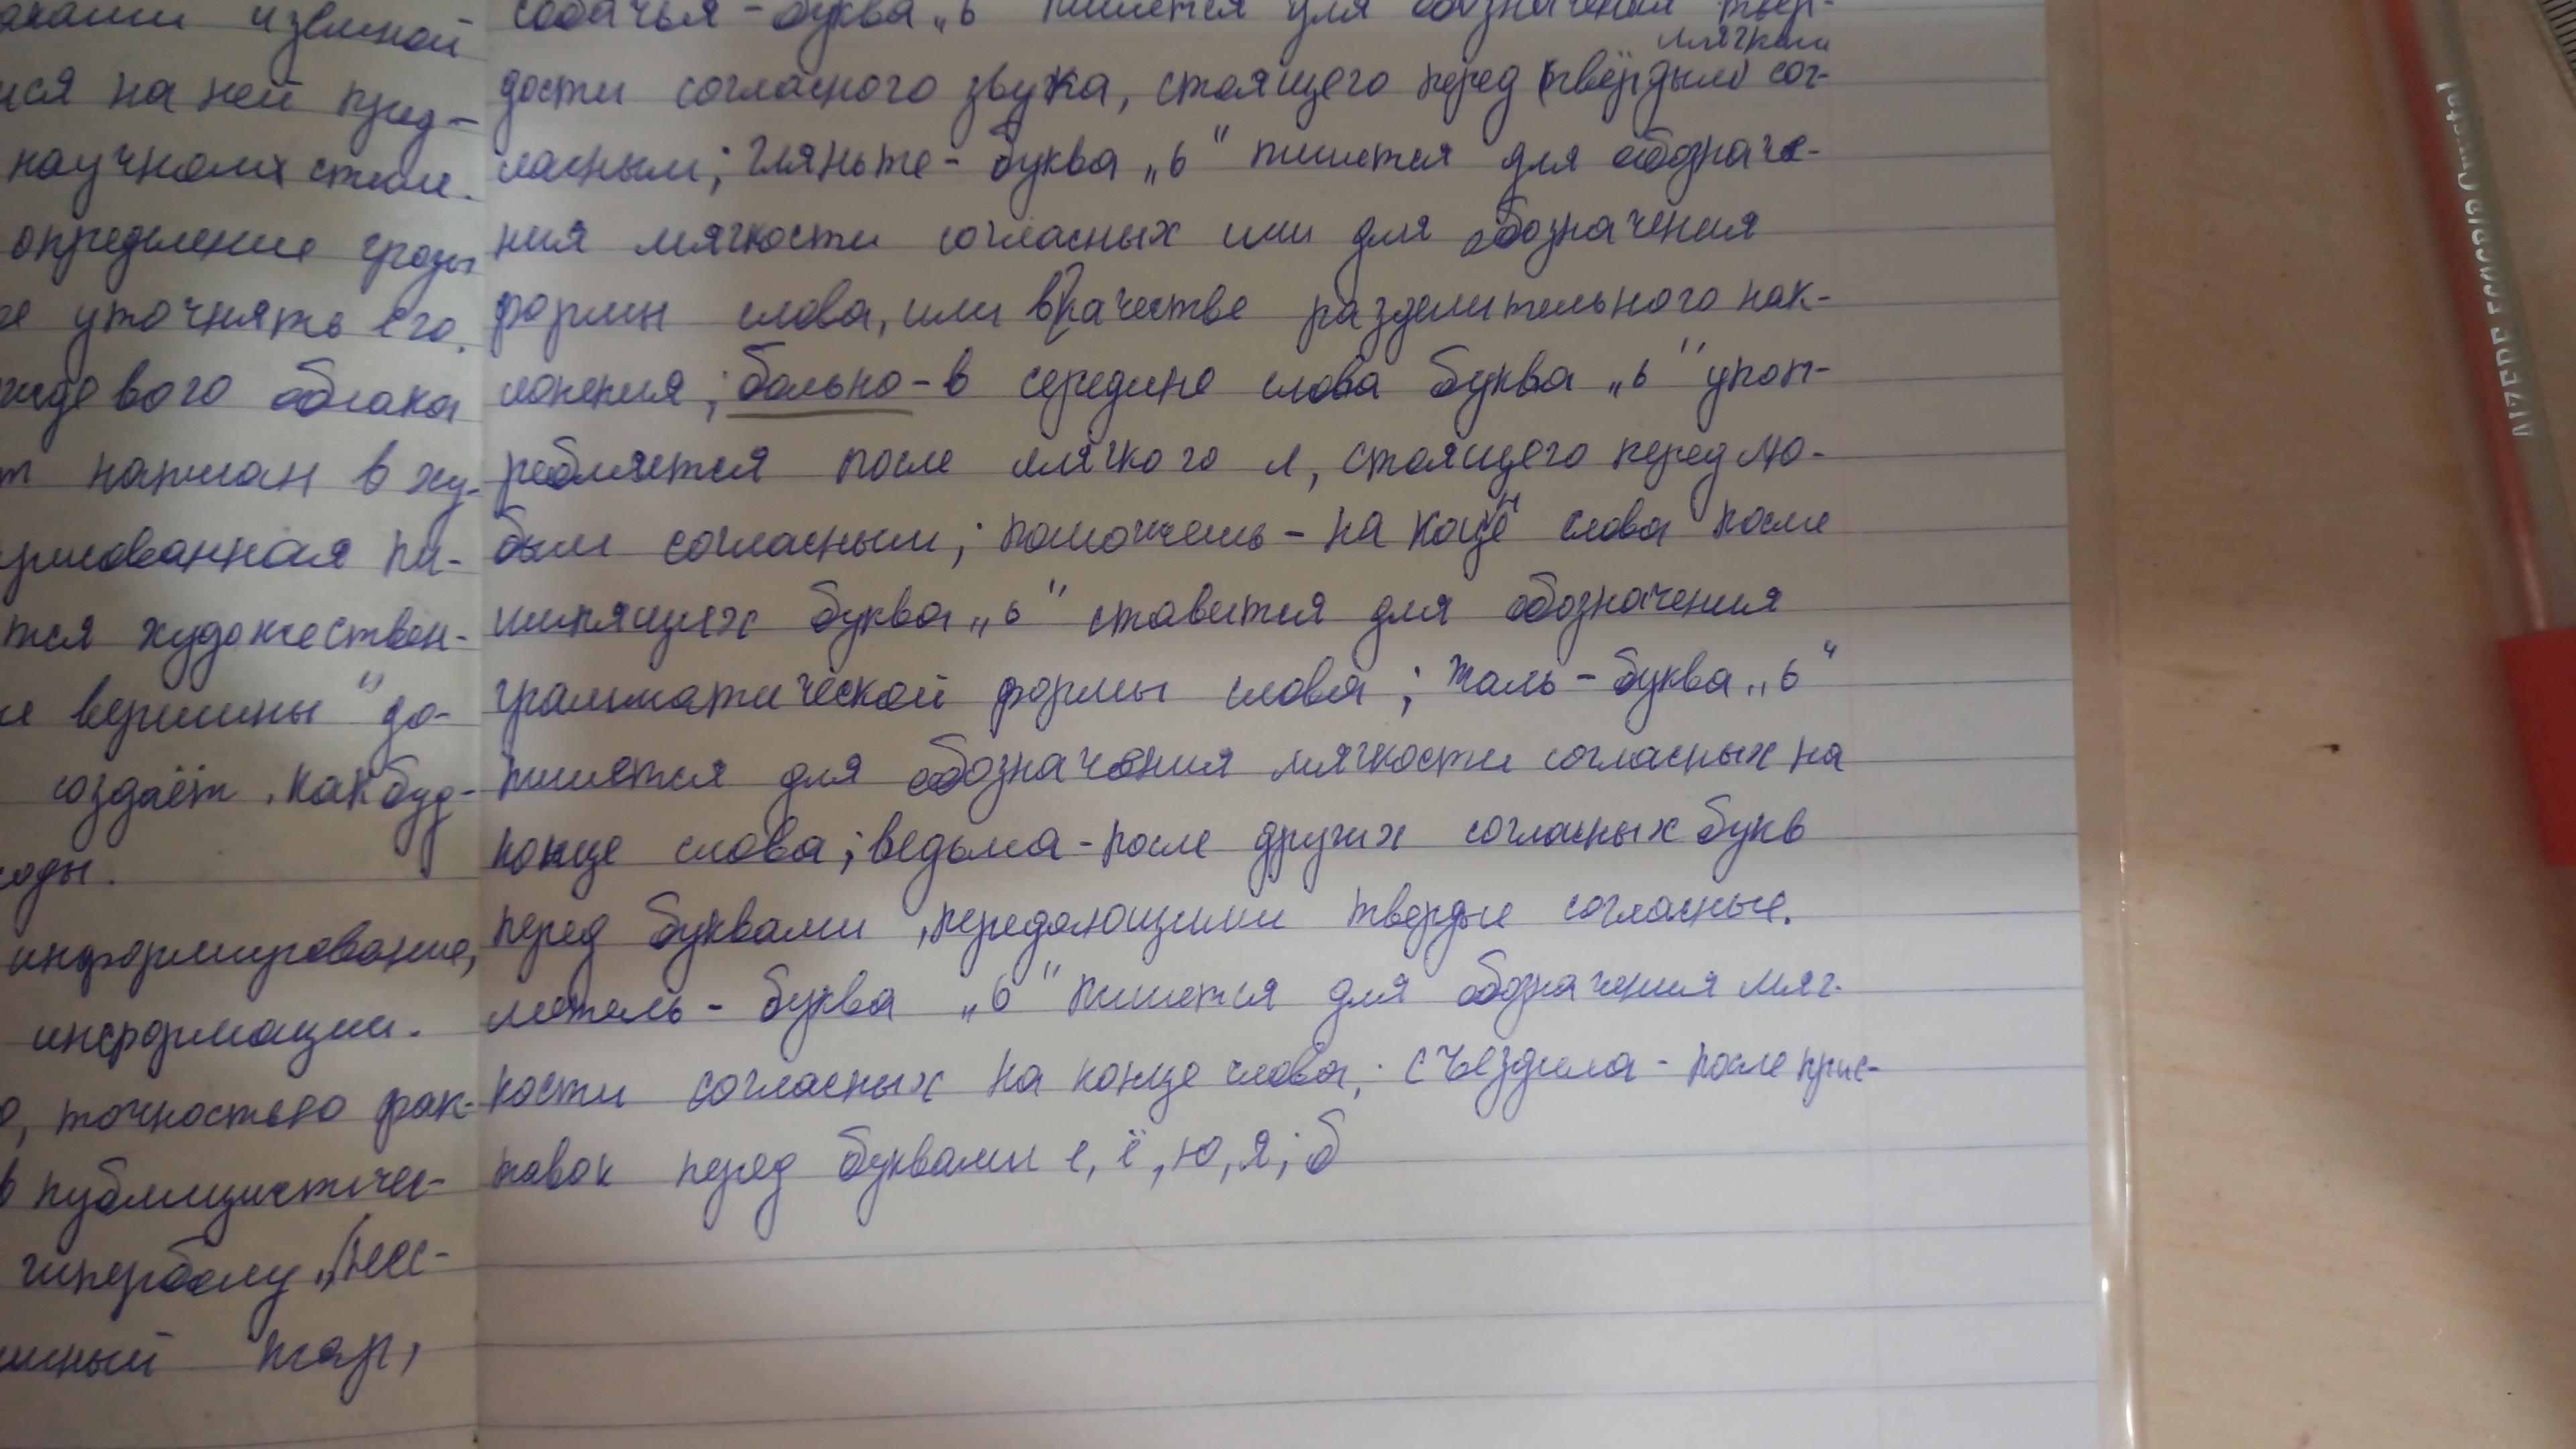 и земной
ися на ней пред-
научном стиле.
определение грозы
уточнять его.
вого облака
написан в ху-
рисованная
тся художествен-
вершины" до-
создаёт, как буд-
оды.
информирование,
информации.
о, точностью фак-
в публицистичес-
гиперболу „нес-
жар,
собачья - буква „ь пишется для обозначения твёр-
мягким
дости согласного звука, стоящего перед (твёрдым) сог-
ласным; гляньте - буква „ь" пишется для обозначе-
ния мягкости согласных или для обозначения
формы слова, или в качестве разделительного нак-
лонения; больно - в середине слова буква „ь" упот-
ребляется после мягкого л, стоящего перед лю-
бым согласным; поможешь - на конце слова после
шипящих буква „ь" ставится для обозначения
грамматической формы слова; жаль - буква „ь"
пишется для обозначения мягкости согласных на
конце слова; ведьма - после других согласных букв
перед буквами, передающими твердые согласные.
метель - буква „ь" пишется для обозначения мяг-
кости согласных на конце слова; съездила - после прис-
тавок перед буквами е, ё, ю, я; б